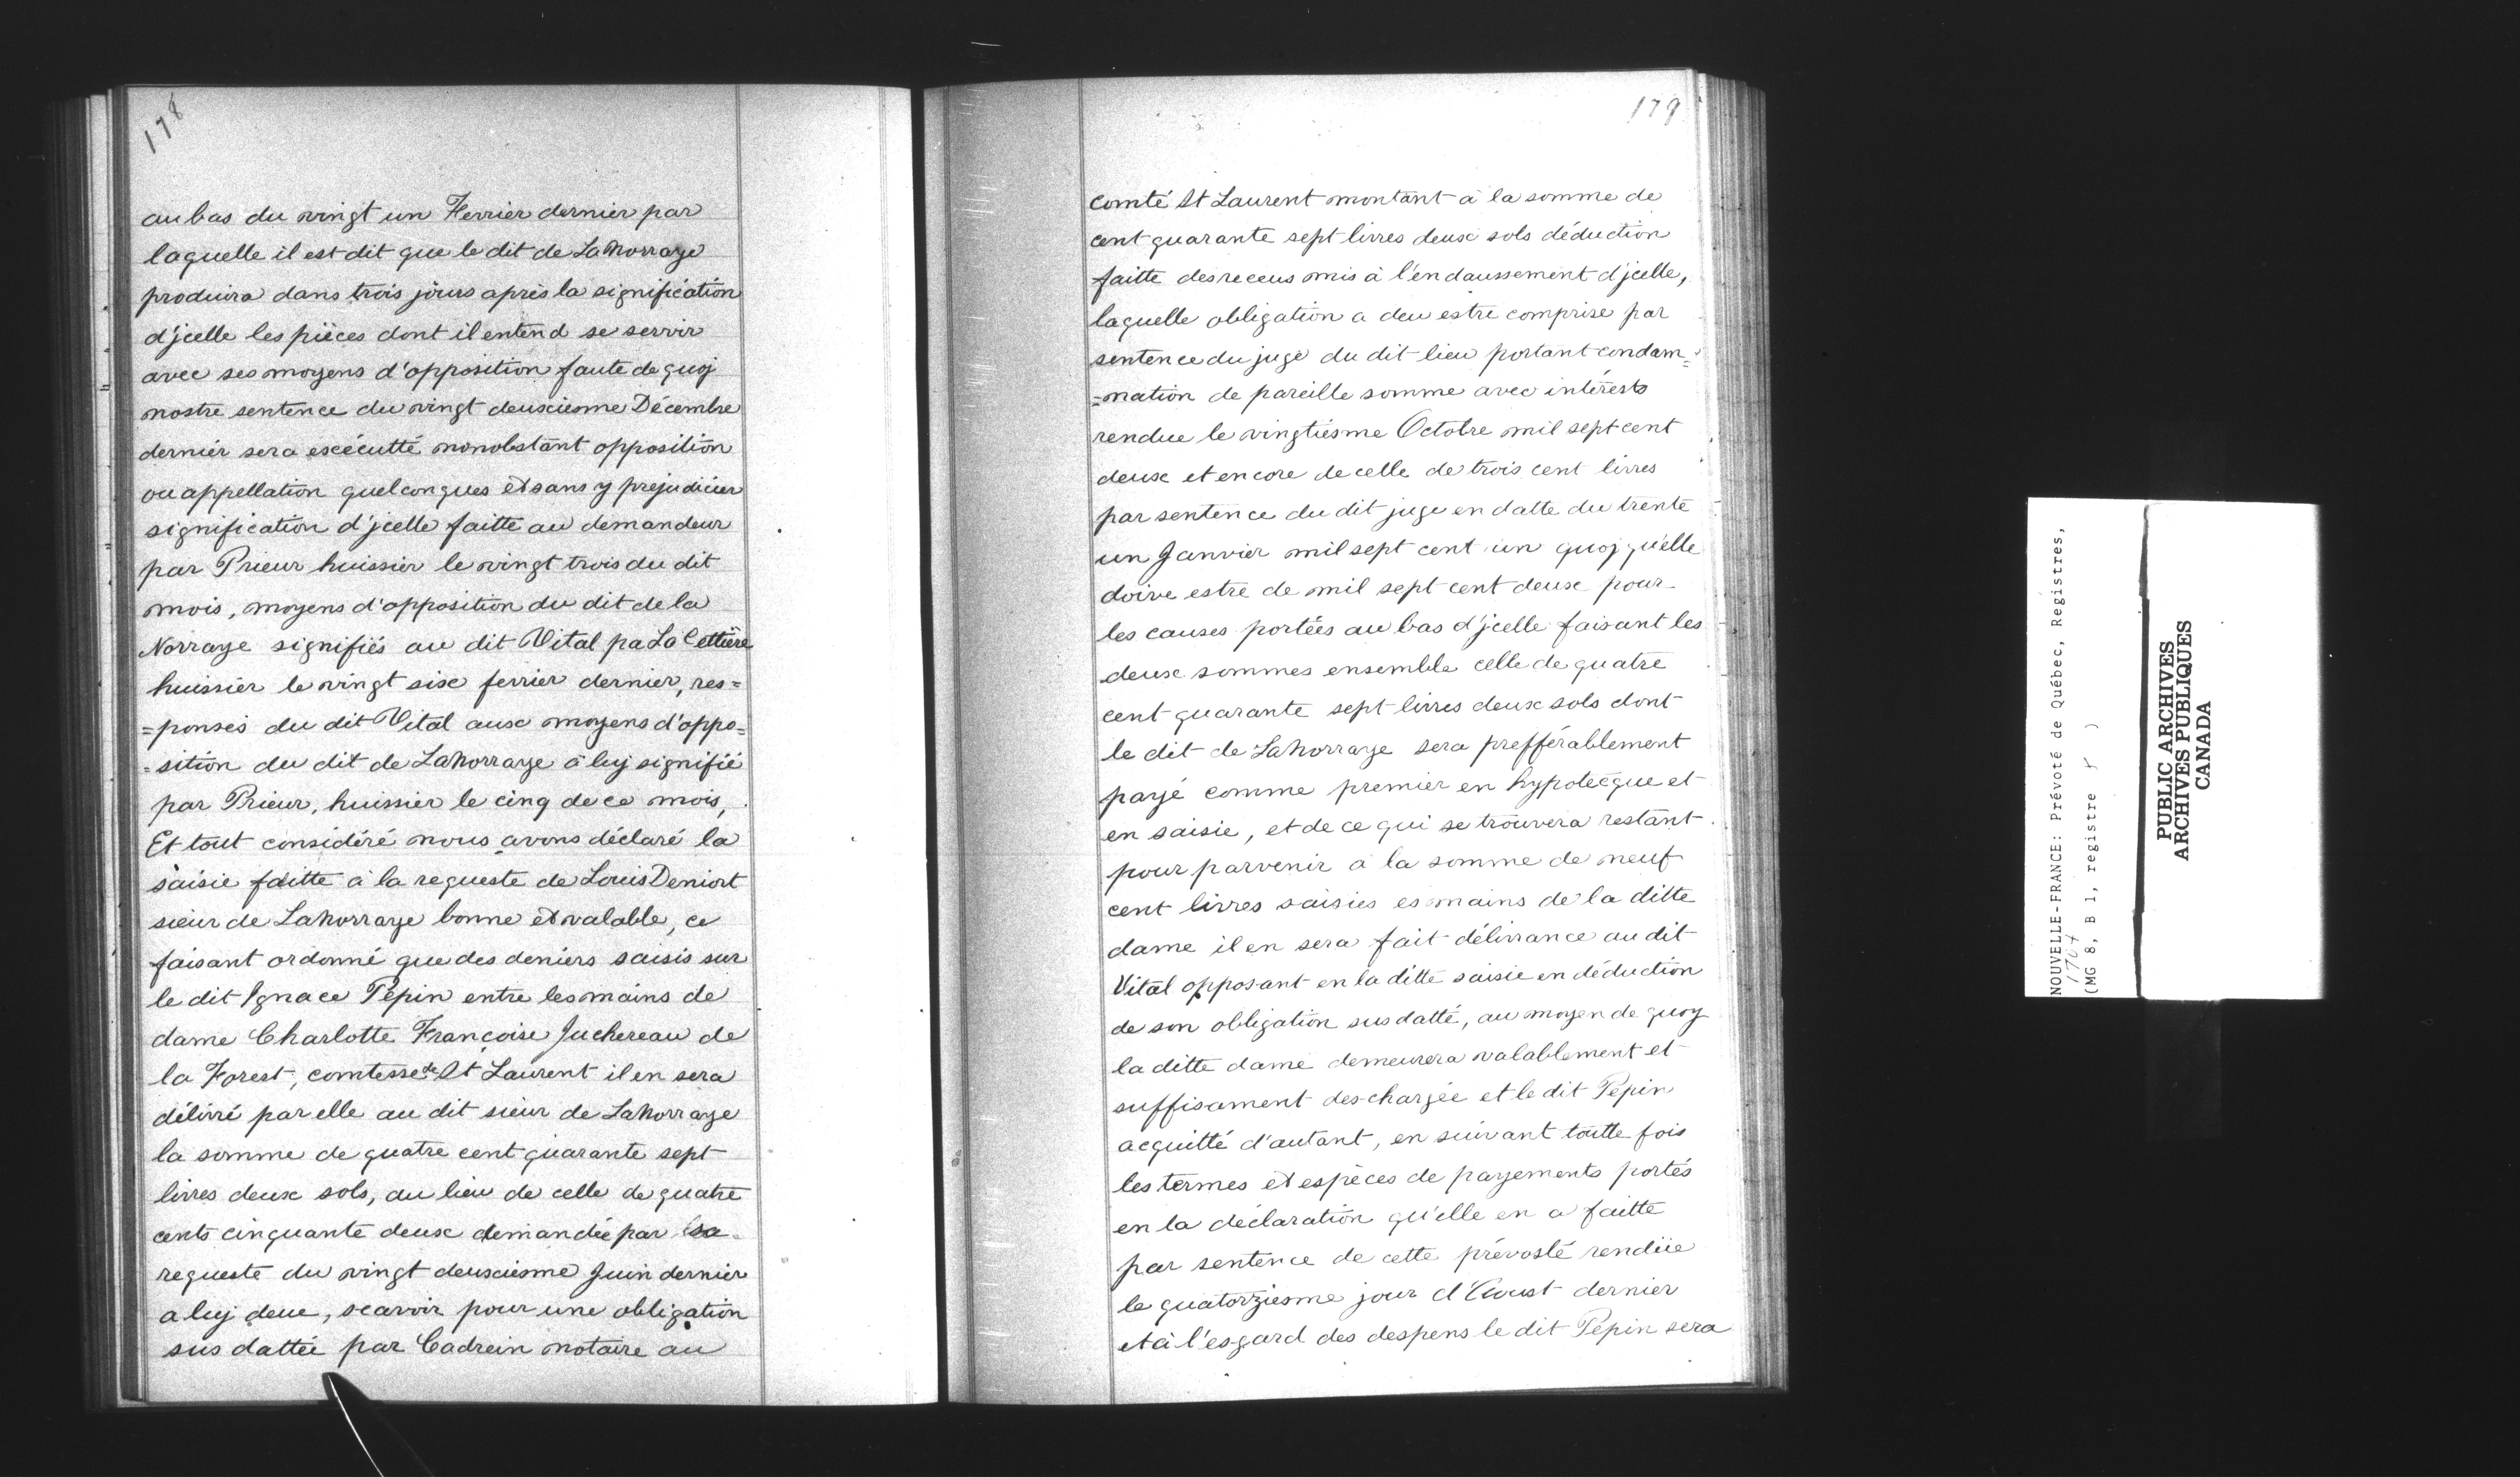 178
au bas du vingt un Fevrier dernier par
laquelle il est dit que le dit de Lanorraye
produira dans trois jours après la signification
d'jcelle les pièces dont il entend se servir
avec ses moyens d'opposition faute de quoj
nostre sentence du vingt deuxiesme Décembre
dernier sera exécutté nonobstant opposition
ou appellation quelconques et sans y préjudicier
signification d'jcelle faitte au demandeur
par Prieur huissier le vingt trois du dit
mois, moyens d'opposition du dit de la
Norraye signifiés au dit Vital pa La Cettière
huissier le vingt six fevrier dernier, res=
=ponses du dit Vital aux moyens d'oppo=
=sition du dit de Lanorraye à luj signifié
par Prieur, huissier le cinq de ce mois,
Et tout considéré nous avons déclaré la
saisie faitte à la requeste de Louis Deniort
sieur de Lanorraye bonne et valable, ce
faisant ordonné que des deniers saisis sur
le dit Ignace Pépin entre les mains de
dame Charlotte Françoise Juchereau de
la Forest, comtesse de St Laurent il en sera
délivré par elle au dit sieur de Lanorraye
la somme de quatre cent quarante sept
livres deux sols, au lieu de celle de quatre
cents cinquante deux demandée par sa
requeste du vingt deuxiesme Juin dernier
a luj deue, scavoir pour une obligation
sus dattée par Cadrein notaire au
179
comté St Laurent montant à la somme de
cent quarante sept livres deux sols déduction
faitte des receus mis à l'endaussement d'jcelle,
laquelle obligation a deu estre comprise par
sentence du juge du dit lieu portant condam=
=nation de pareille somme avec intérests
rendue le vingtiesme Octobre mil sept cent
deux et encore de celle de trois cent livres
par sentence du dit juge en datte du trente
un Janvier mil sept cent un quoj qu'elle
doive estre de mil sept cent deux pour
les causes portées au bas d'jcelle faisant les
deux sommes ensemble celle de quatre
cent quarante sept livres deux sols dont
le dit de Lanorraye sera prefférablement
payé comme premier en hypotecque et
en saisie, et de ce qui se trouvera restant
pour parvenir à la somme de neuf
cent livres saisies es mains de la ditte
dame il en sera fait délivrance au dit
Vital opposant en la ditte saisie en déduction
de son obligation susdatté, au moyen de quoy
la ditte dame demeurera valablement et
suffisament deschargée et le dit Pepin
acquitté d'autant, en suivant toutte fois
les termes et espèces de payements portés
en la déclaration qu'elle en a faitte
par sentence de cette prévosté rendüe
le quatorziesme jour d'Aoust dernier
et à l'esgard des despens le dit Pepin sera
NOUVELLE-FRANCE: Prévoté de Québec, Registres,
1704
(MG 8, B 1, registre )
PUBLIC ARCHIVES
ARCHIVES PUBLIQUES
CANADA